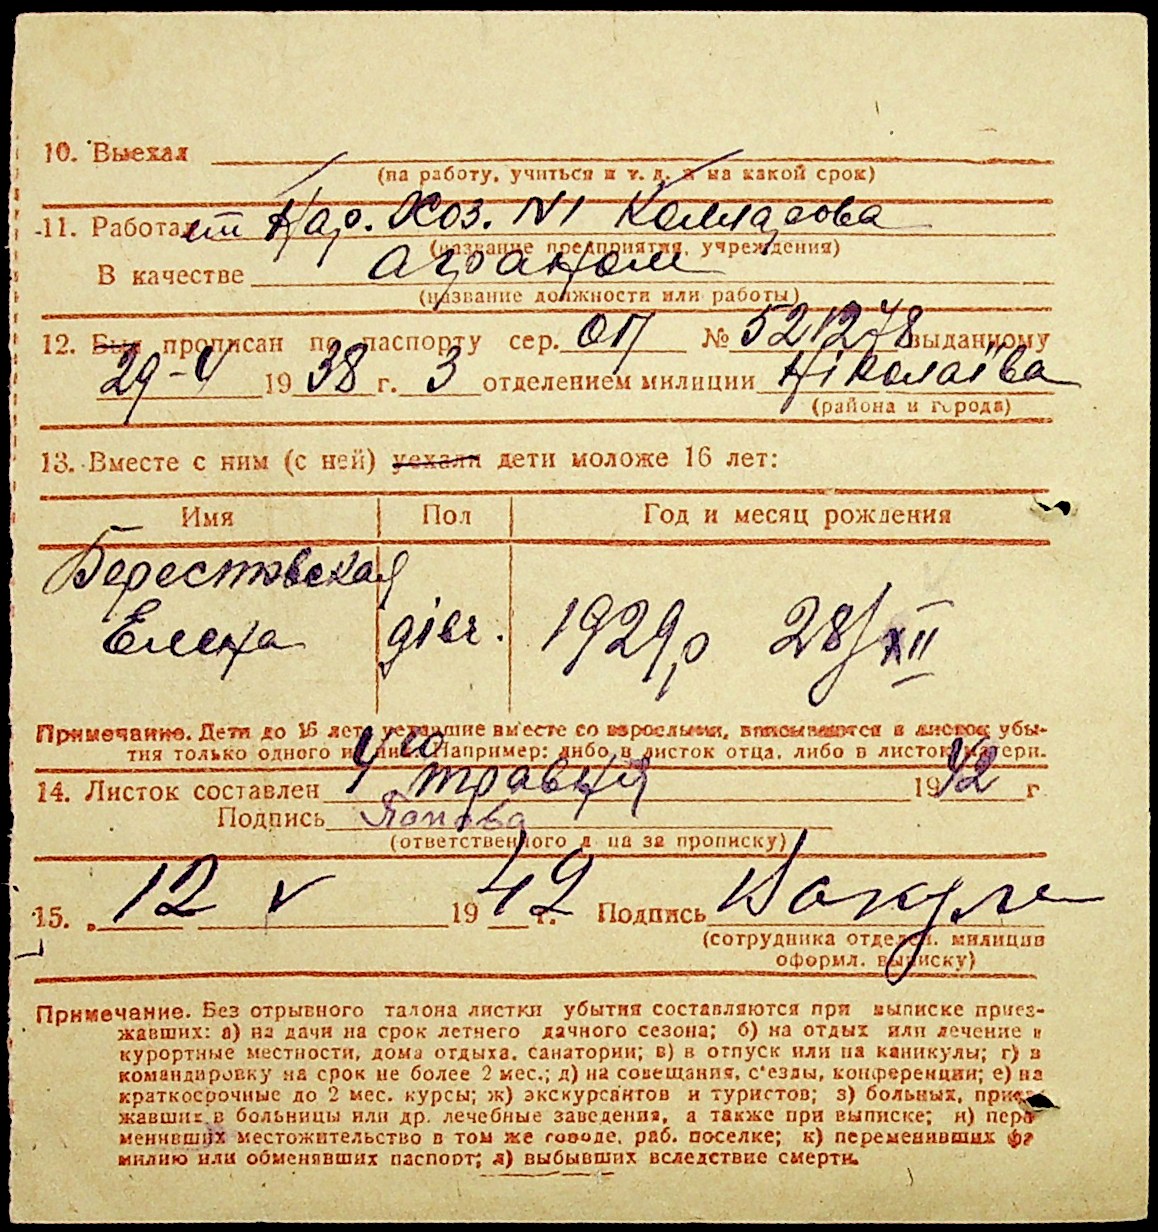 10. Выехал
(на работу, учиться и т. д. и на какой срок)
11. Работает Нар. Хоз. №1
(название предприятия, учреждения)
В качестве агроном
(название должности или работы)
12. Был прописан по паспорту сер. ОП № 521278 выданному
29-V 1938 г. 3 отделением милиции Ніколаїва
(района и города)
13. Вместе с ним (с ней) уехали дети моложе 16 лет:
Имя Пол Год и месяц рождения
Берестовская
Елена дівч. 1929р 28/XII
Примечание. Дети до 16 лет, уехавшие вместе со взрослыми, вписываются в листок убы-
тия только одного из них. Например: либо в листок отца, либо в листок матери.
14. Листок составлен 4го травня 1942 г
Подпись Попова
(ответственного л ца за прописку)
15. „12 V 1942 г. Подпись
(сотрудника отделен. милиции
оформл. выписку)
Примечание. Без отрывного талона листки убытия составляются при выписке приез-
жавших: а) на дачи на срок летнего дачного сезона; б) на отдых или лечение в
курортные местности, дома отдыха, санатории; в) в отпуск или на каникулы; г) в
командировку на срок не более 2 мес.; д) на совещания, с'езды, конференции; е) на
краткосрочные до 2 мес. курсы; ж) экскурсантов и туристов; з) больных, приез-
жавших в больницы или др. лечебные заведения, а также при выписке; и) пере
менивших местожительство в том же городе, раб. поселке; к) переменивших фа
милию или обменявших паспорт; л) выбывших вследствие смерти.